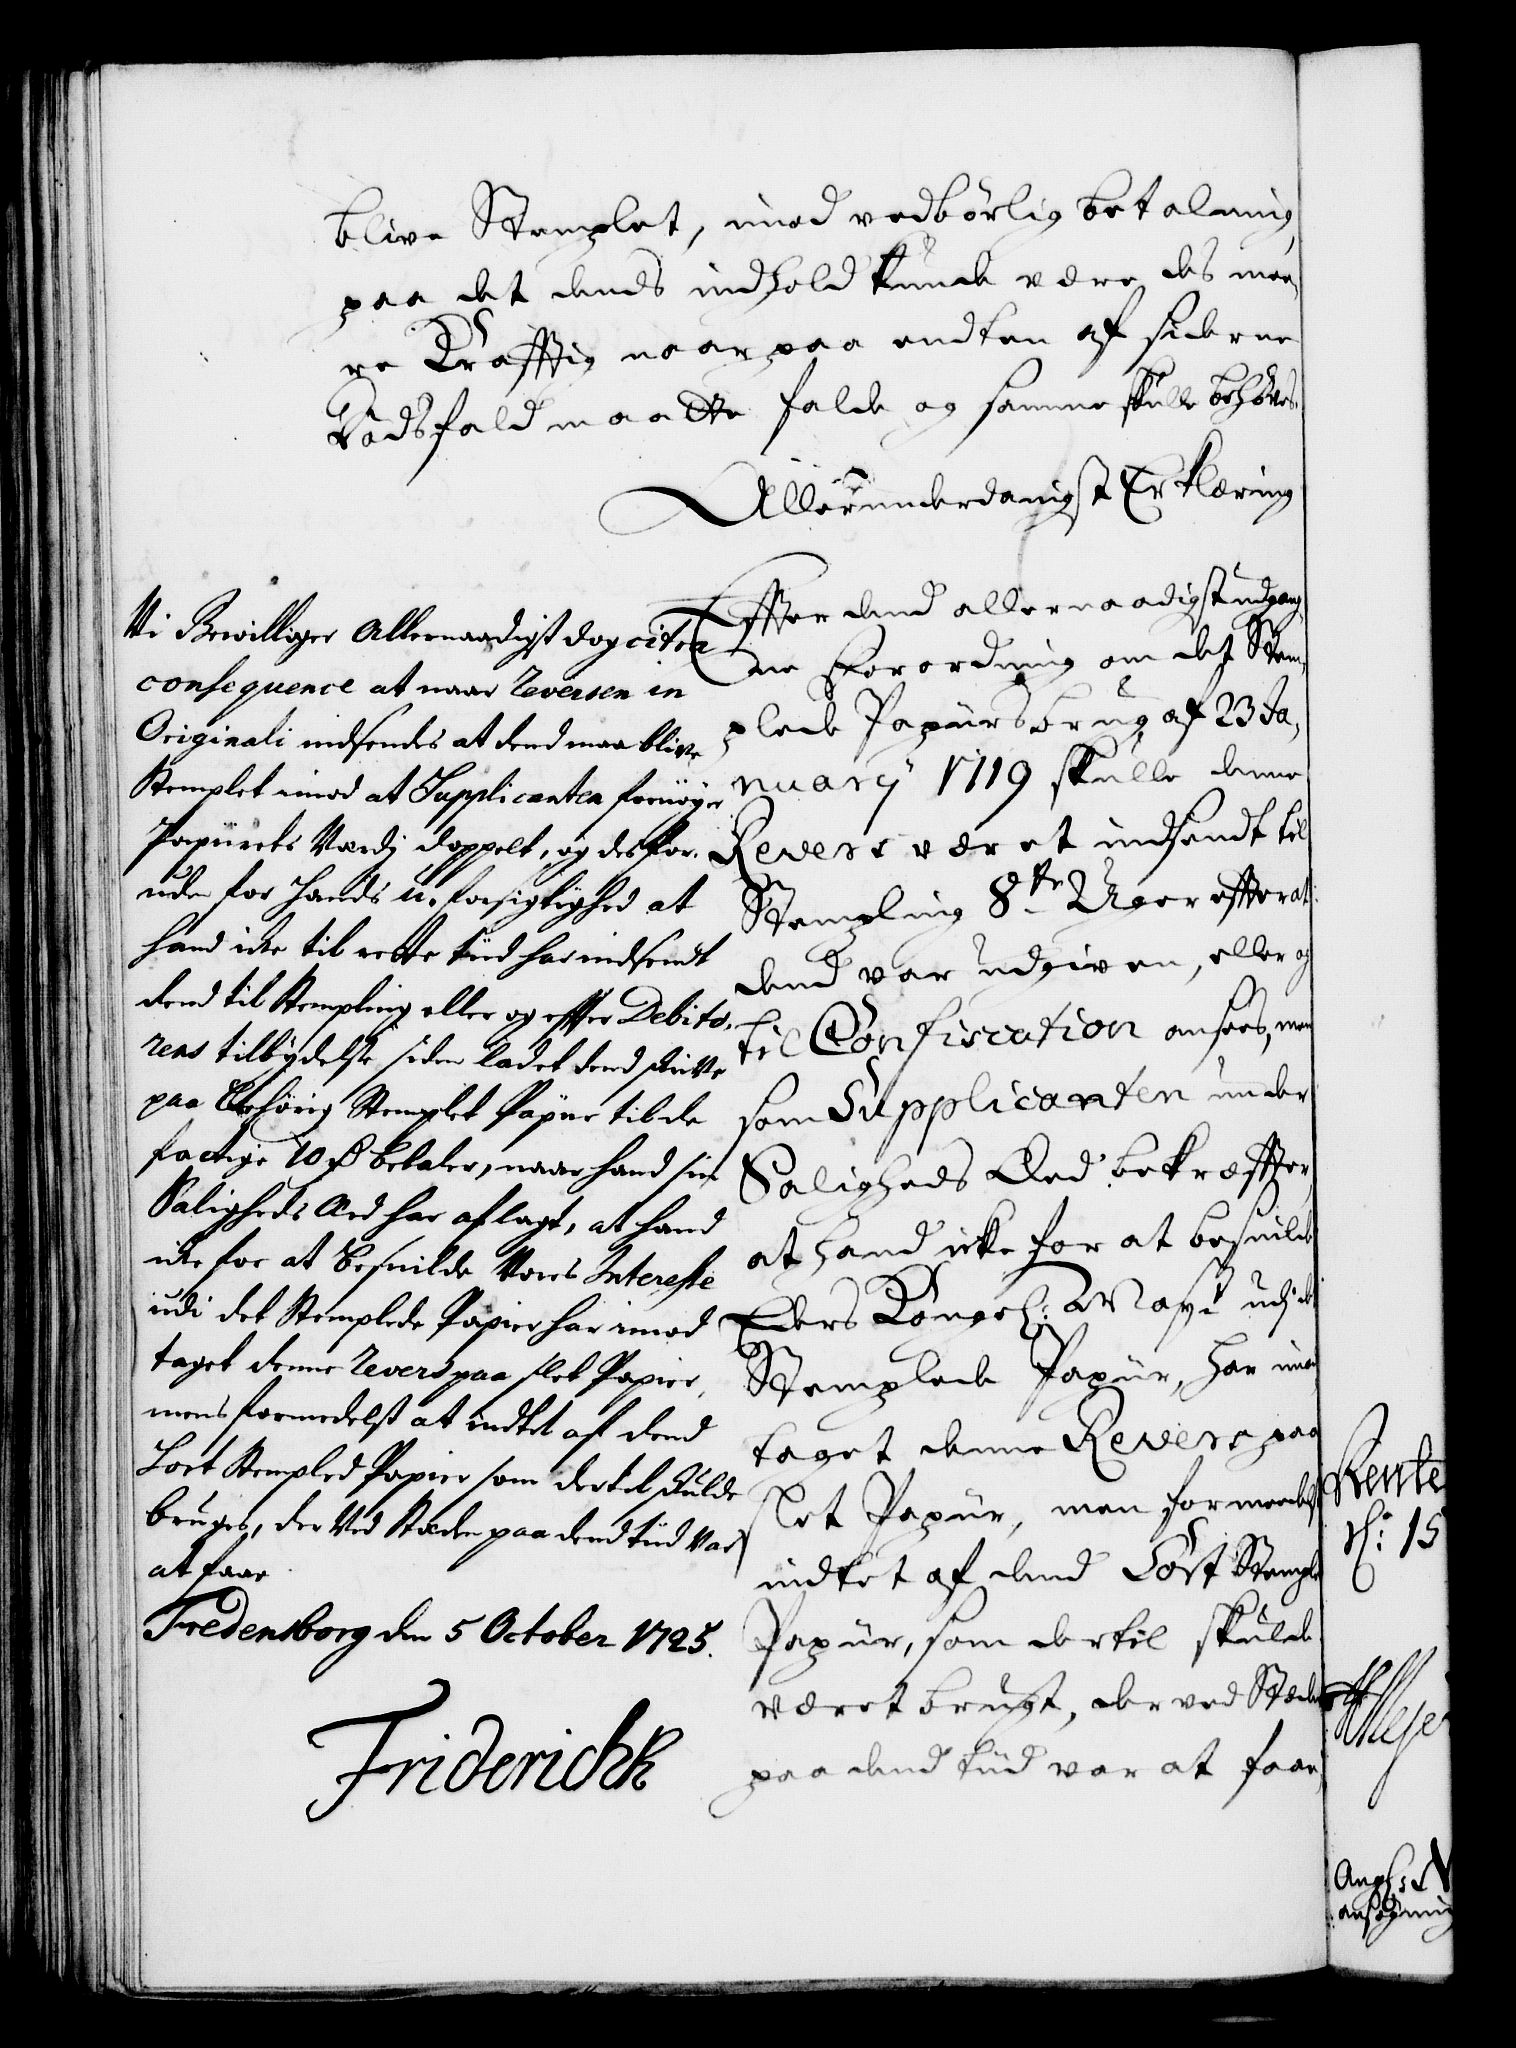 blive Stemplet, imod vedbörlig betalning,
paa det dends indhold kunde være des mee,
re Kraftig naar paa endten af siderne
Dödsfald maatte falde og samme skulle behöves.
Allerunderdanigst Erklæring
Efter dend allernaadigst udgang,
ne Forordning om det Stem,
plede Papiirs brug af 23 Ja,
nuarij 1719 skulle denne
Revers været indsendt til
Stempling 8te Uger efter at
dend var udgiven, eller og
til Confiscation ansees, men
som Supplicanten under
Saligheds Eed bekræfter,
at hand icke for at besnilde
Eders Kongel: Mayt udj det
Stemplede Papiir, har imod
taget denne Revers paa
slet Papiir, men formedelst
indtet af dend Sort Stemplet
Papiir, som dertil skulde
været brugt, der ved Stædet
paa dend tiid var at faae,
Vi Bevilliger Allernaadigst dog citra
consequence at naar Reversen in
Originali indsendes at dend maa blive
Stemplet imod at Supplicanten fornöyer
Papiirets Værdj doppelt, og desfor,
uden for Hands uforsigtighed at
hand icke til rette tiid har indsendt
dend til Stempling eller og efter Debito,
rens tilbydelse siden ladet dend skrive
paa behörig Stemplet Papiir til de
fattige 10 Betaler, naar hand sin
Saligheds Eed har aflagt, at hand
icke for at besnilde Vores Interesse
udi det Stemplede Papiir har imod
taget denne Revers paa slet Papiir,
mens formedelst at indtet af dend
Sort Stempled Papiir som dertil skulde
bruges, der Ved Stædet paa dend tiid Var
at faae
Fredensborg den 5 October 1725.
Friderichk
Rente
d: 15
ansögning